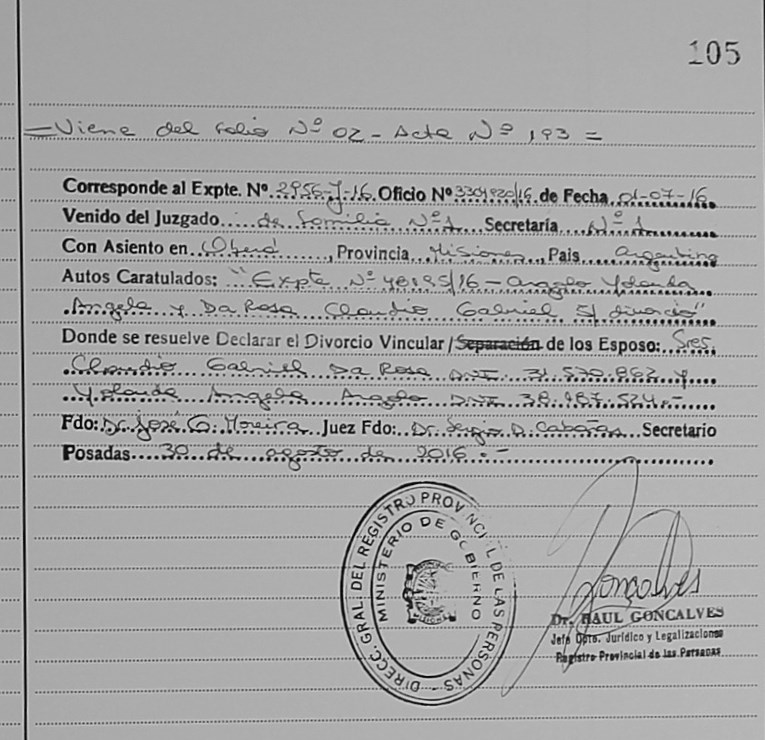 105
— Viene del folio Nº 02 - Acta Nº 193 =
Corresponde al Expte. Nº 2956-J-16 Oficio Nº de Fecha 01-07-16
Venido del Juzgado de Familia Nº 1 Secretaría Nº 1
Con Asiento en Oberá, Provincia Misiones, Pais Argentina
Autos Caratulados: "Expte Nº /16 - Yolanda
Angela y Da Rosa Claudio Gabriel S/ divorcio"
Donde se resuelve Declarar el Divorcio Vincular / Separación de los Esposo: Sres.
Claudio Gabriel Da Rosa DNI 31.570.862 y
Yolanda Angela DNI
Fdo: Dr. José G. Moreira Juez Fdo: Dr. Sergio D. Cabañas Secretario
Posadas 30 de agosto de 2016.-
DIRECC. GRAL. DEL REGISTRO PROVINCIAL DE LAS PERSONAS -
MINISTERIO DE GOBIERNO
Goncalves
Dr. RAUL GONCALVES
Jefe Dpto. Jurídico y Legalizaciones
Registro Provincial de las Personas